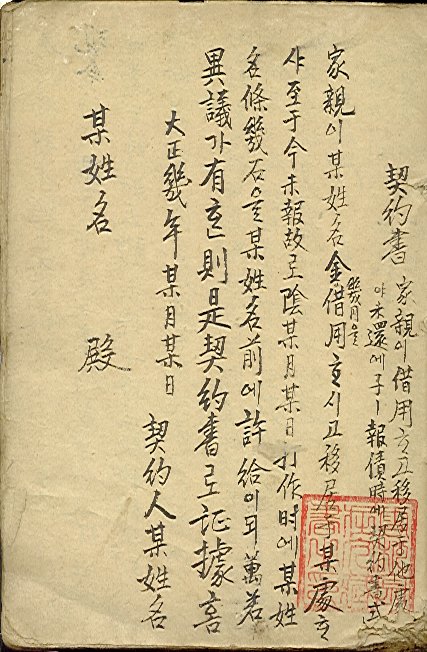 契約書
家親이借用ᄒᆞ고移居于他處
야未還에子ㅣ報債時에契約書式
家親이某姓名金幾円을借用ᄒᆞ시고移居于某處ᄒᆞ
샤至于今未報故로陰某月某日打作時에某姓
名條幾石을某姓名前에許給이되萬若
異議가有ᄒᆞᆫ則是契約書로証據言
大正幾年某月某日
契約人某姓名
某姓名 殿